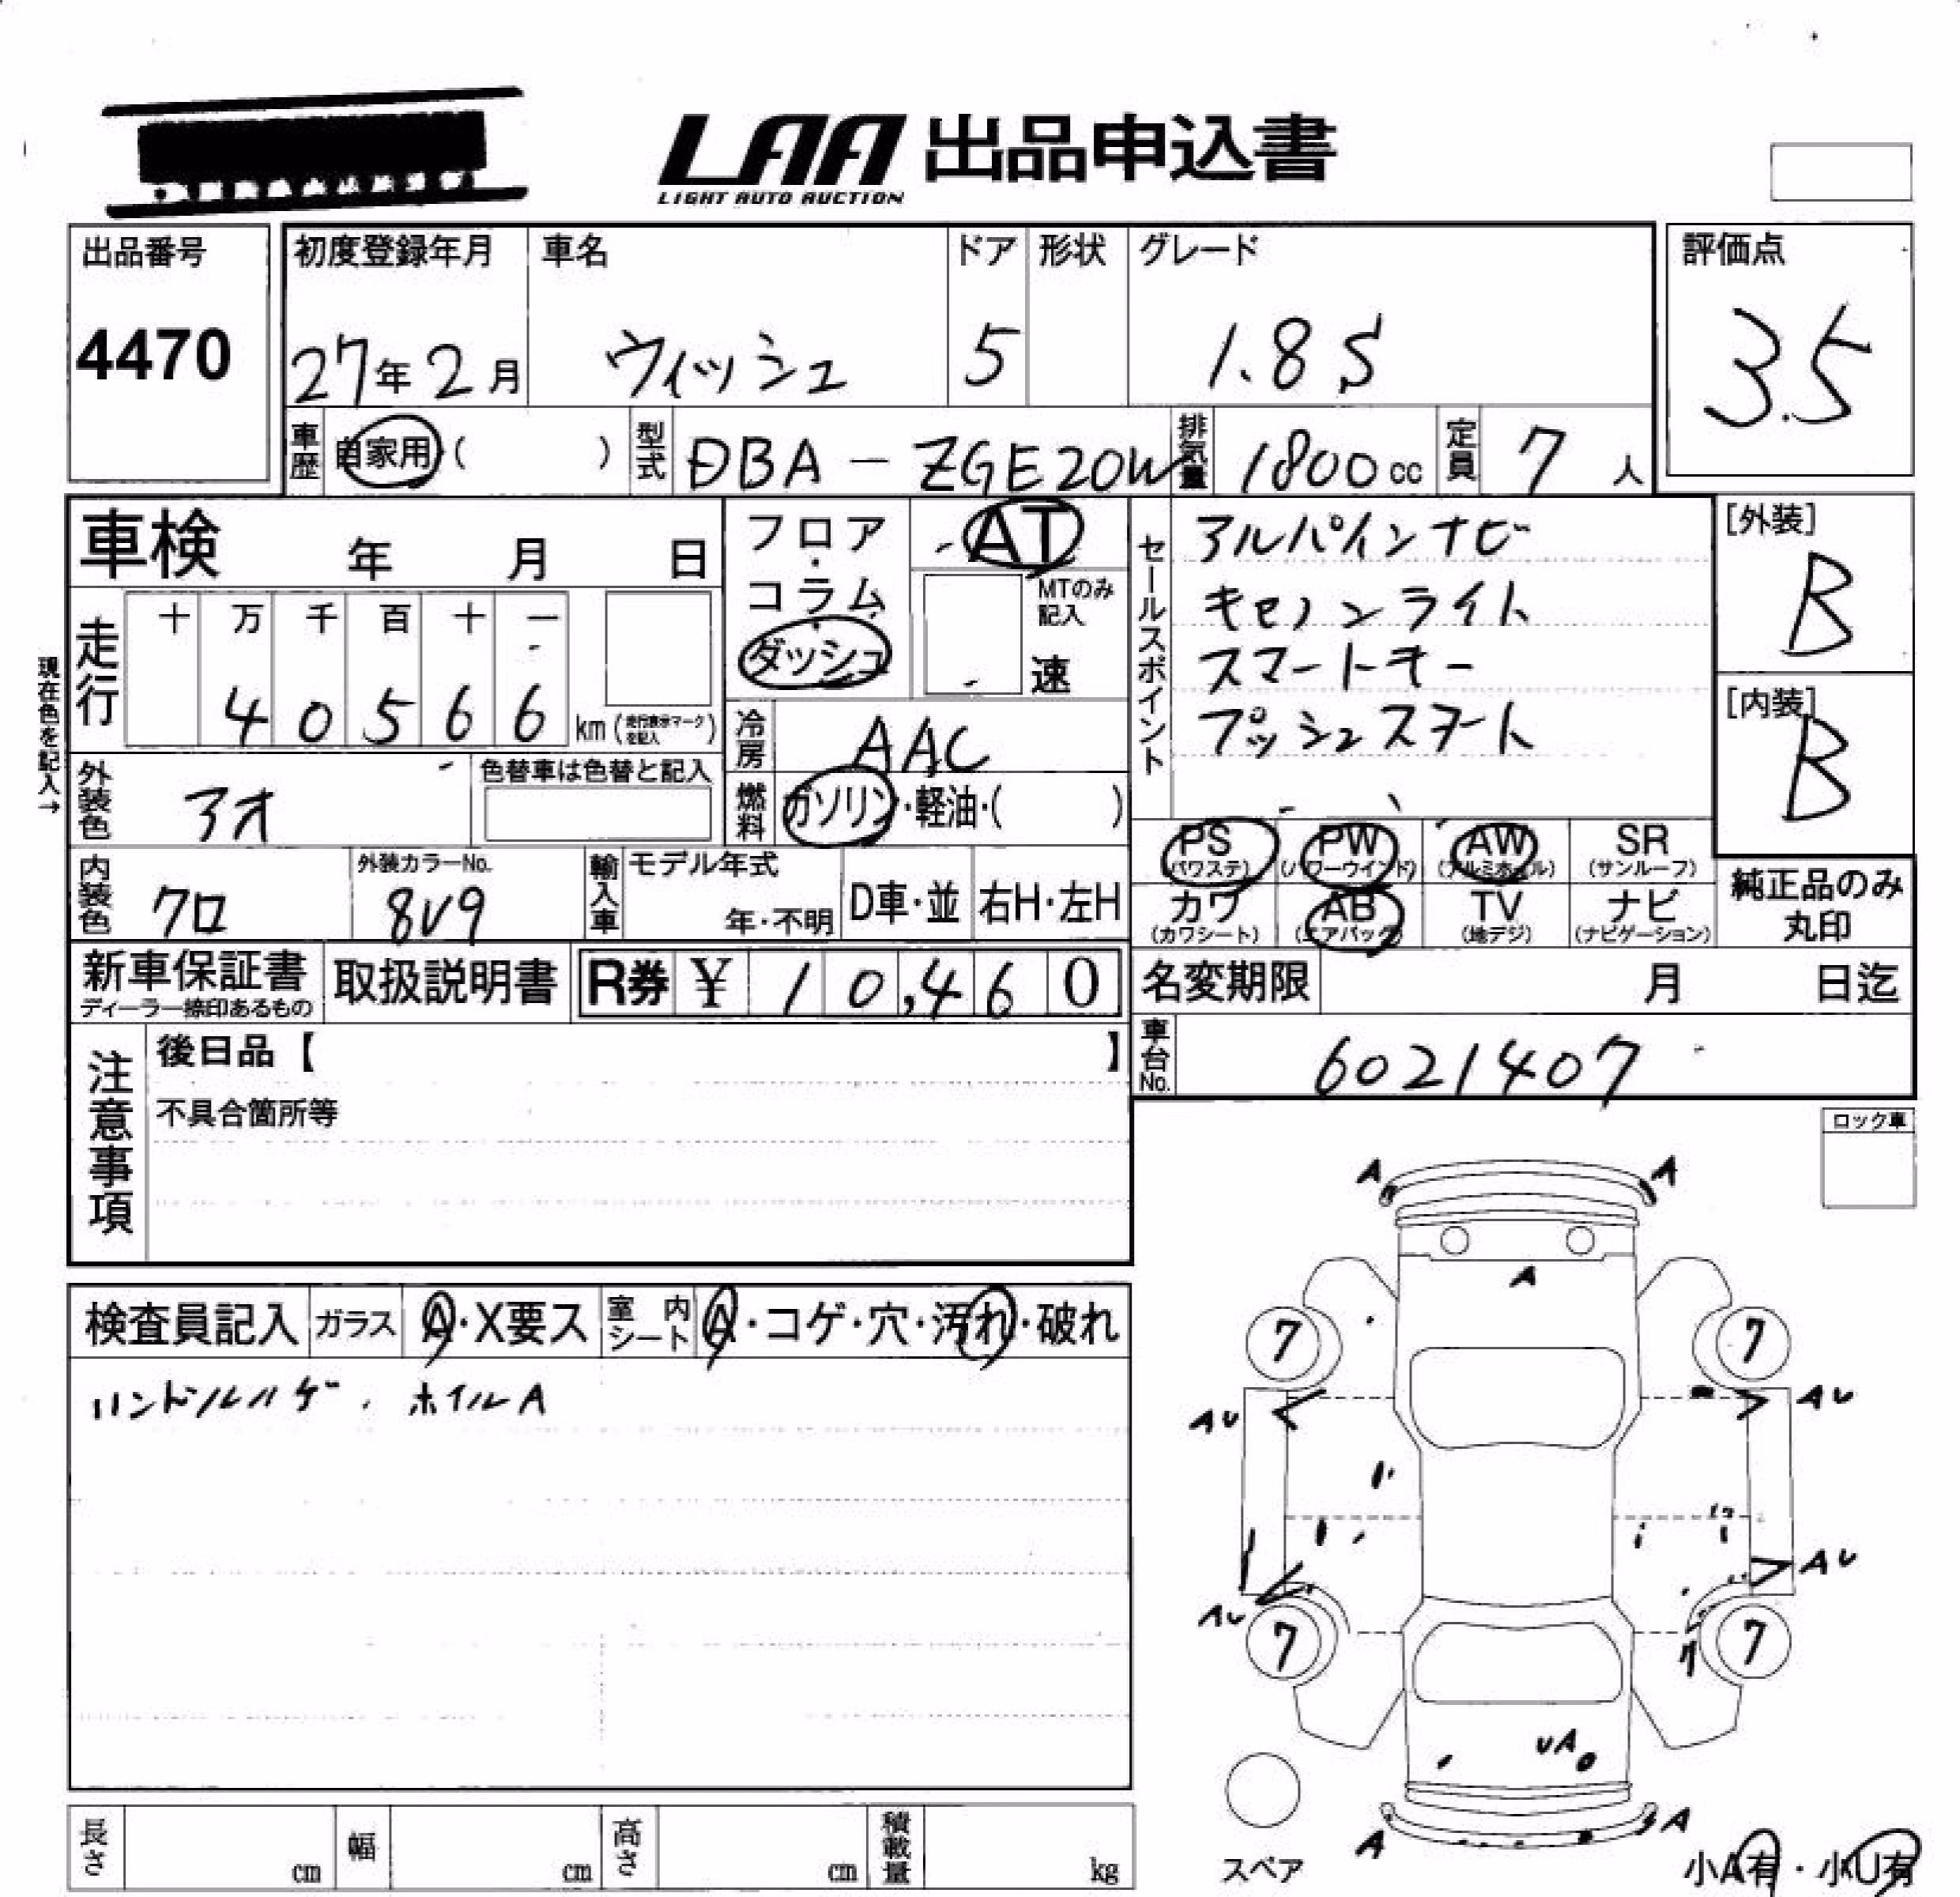 LAA 出品申込書
LIGHT AUTO AUCTION
出品番号
4470
初度登録年月
27年2月
車名
ウィッシュ
ドア
5
形状
グレード
1.8S
評価点
3.5
車歴
自家用 ( )
型式
DBA-ZGE20W
排気量
1800cc
定員
7人
車検 年 月 日
フロア・コラム
ダッシュ
AT
MTのみ記入
速
セールスポイント
アルパインナビ
キセノンライト
スマートキー
プッシュスタート
[外装]
B
[内装]
B
現在色を記入→
走行
十 万 千 百 十 一
4 0 5 6 6
km (走行表示マークを記入)
冷房
AAC
外装色
アオ
色替車は色替と記入
燃料
ガソリン・軽油・( )
PS (パワステ)
PW (パワーウインド)
AW (アルミホイル)
SR (サンルーフ)
カワ (カワシート)
AB (エアバック)
TV (地デジ)
ナビ (ナビゲーション)
純正品のみ丸印
内装色
クロ
外装カラーNo.
8V9
輸入車
モデル年式
年・不明
D車・並
右H・左H
新車保証書
ディーラー捺印あるもの
取扱説明書
R券 ¥ 10,460
名変期限 月 日迄
注意事項
後日品【 】
不具合箇所等
車台No.
6021407
ロック車
検査員記入
ガラス
A・X要ス
室内シート
A・コゲ・穴・汚れ・破れ
ハンドルハゲ、ホイルA
A A
A
7 7
AU AU
AU AU
7 7
UA
A A
スペア
小A有・小U有
長さ cm
幅 cm
高さ cm
積載量 kg